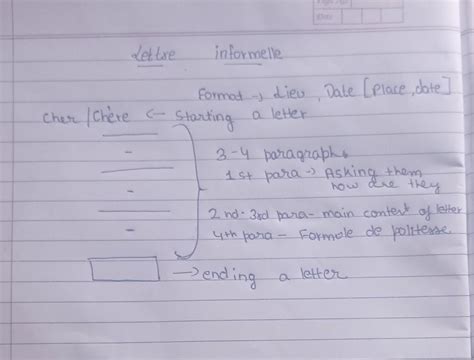 Lettre informelle
Format → Lieu, Date [Place, date]
Cher / Chère ← Starting a letter
3-4 paragraphs
1st para → Asking them
how are they
2nd-3rd para - main content of letter
4th para - Formole de politesse
→ ending a letter